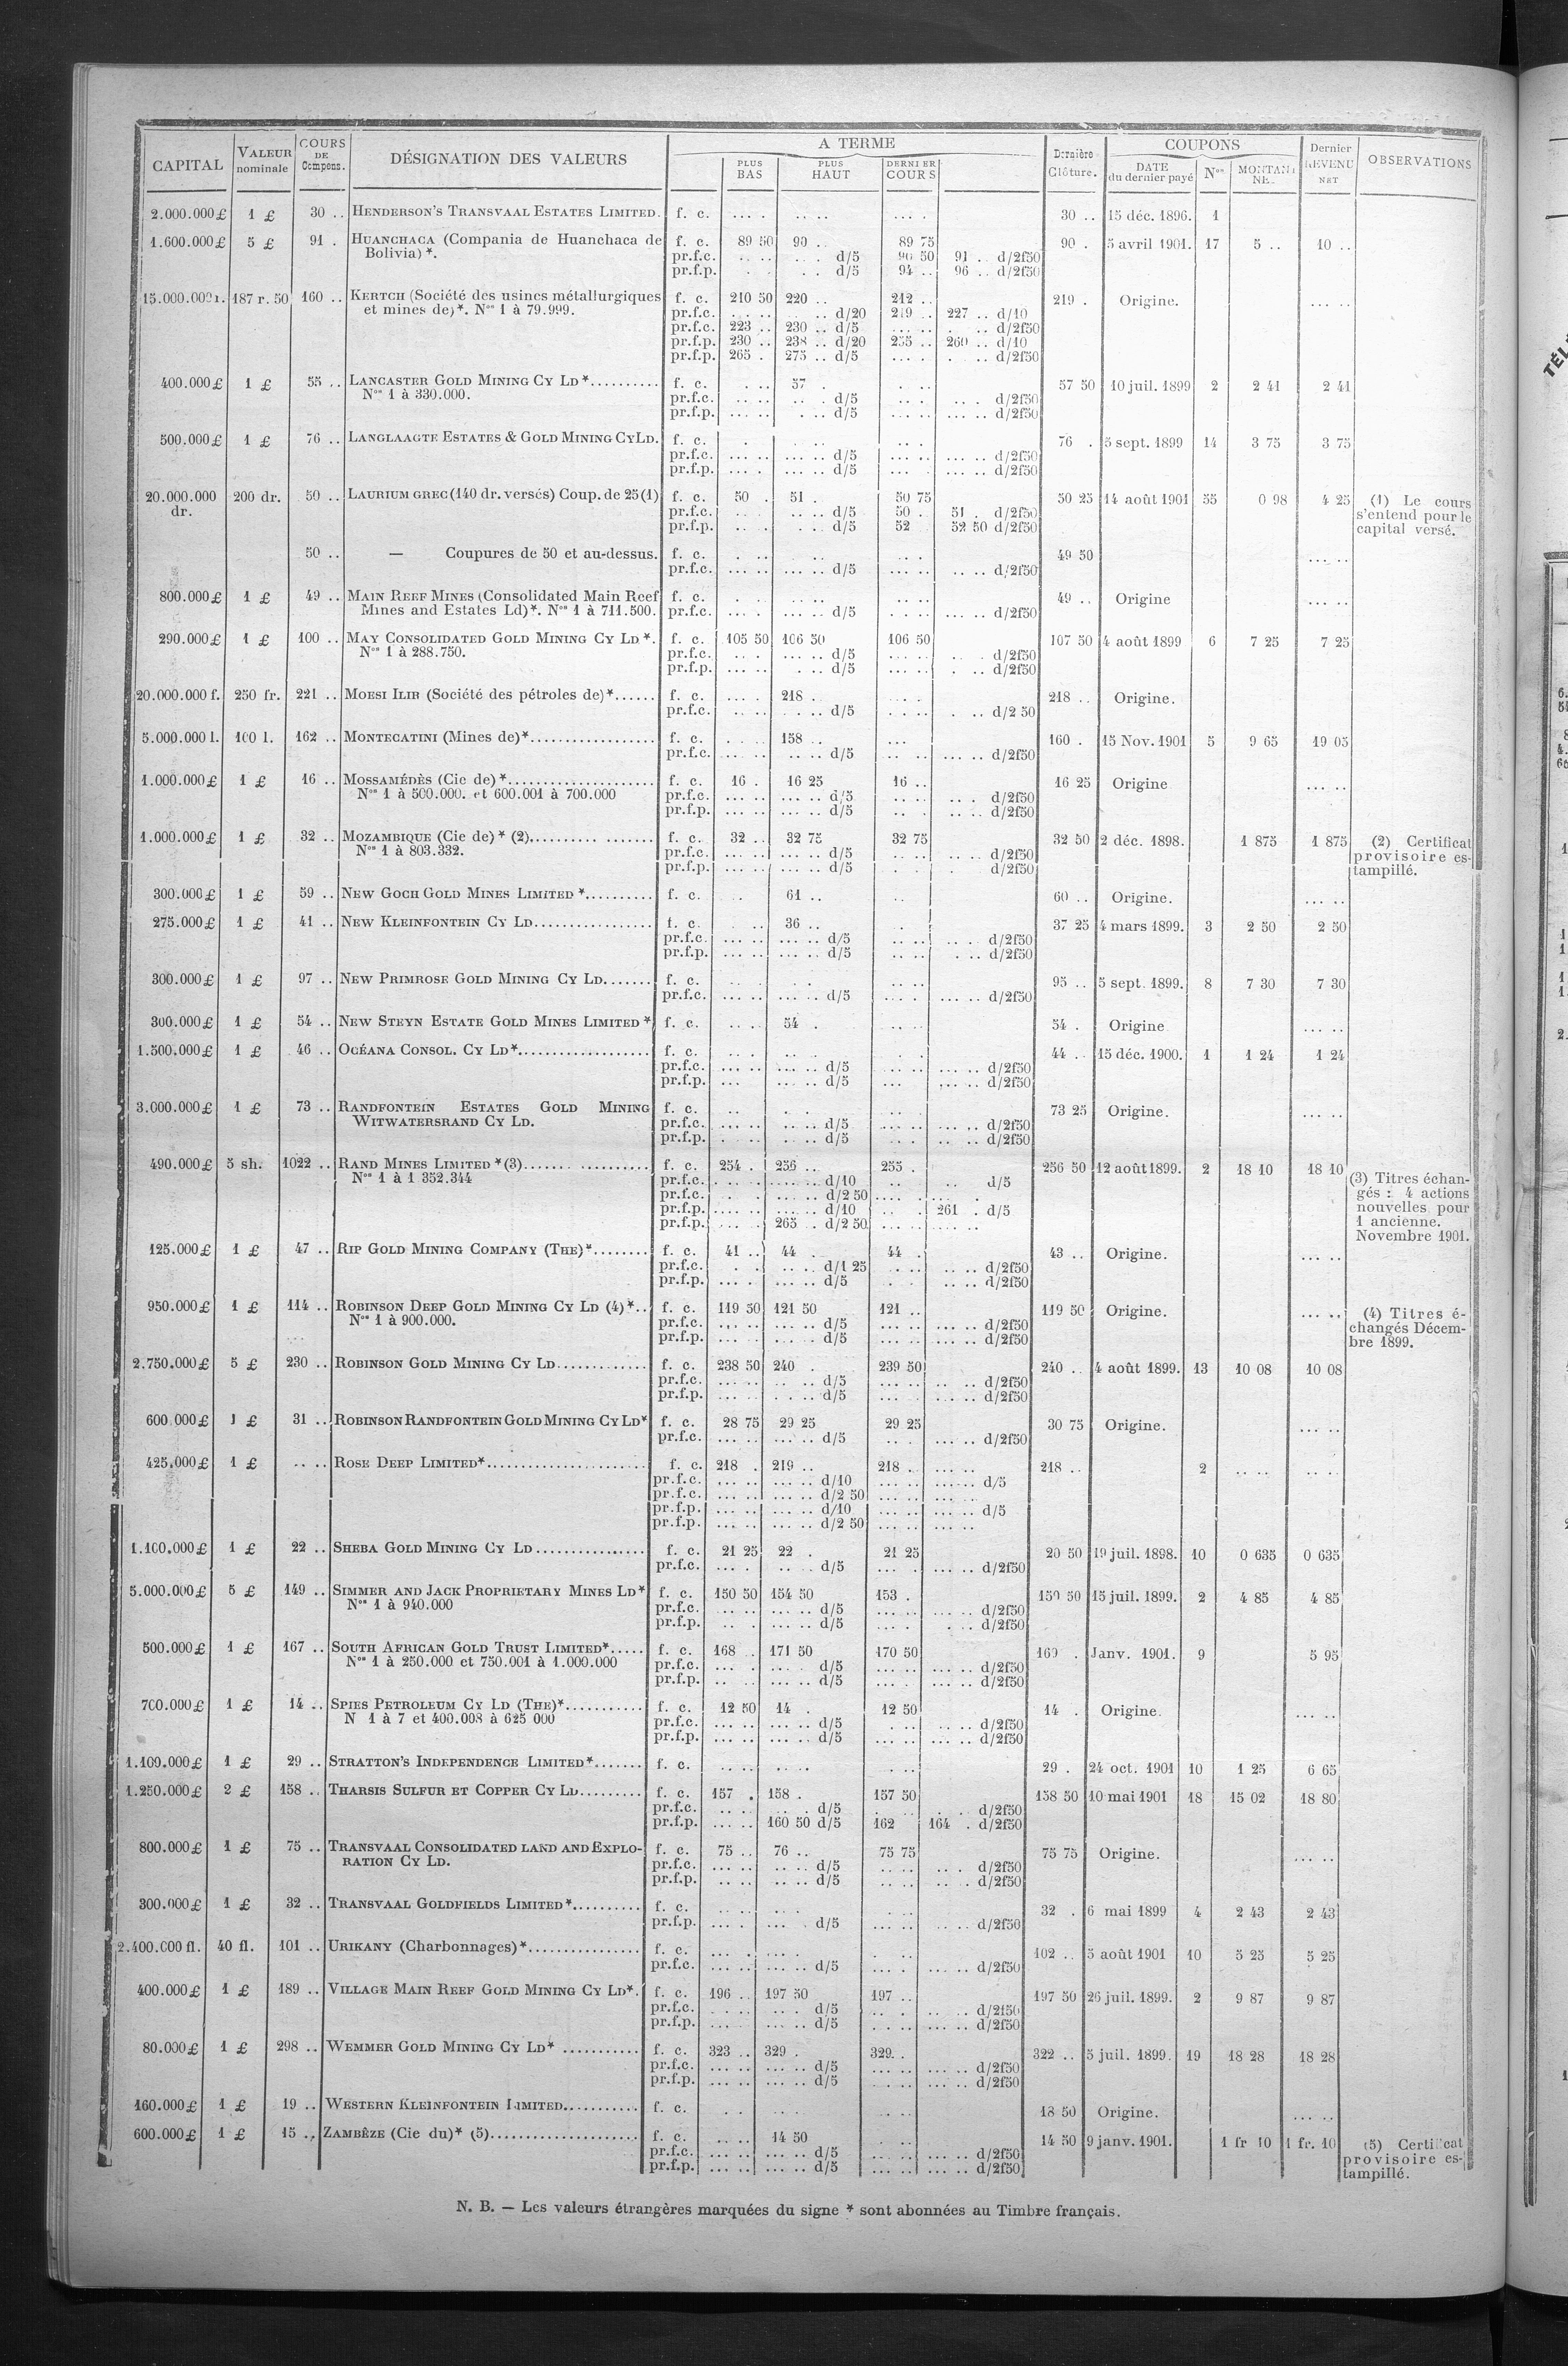 CAPITAL VALEUR nominale COURS DE Compens. DÉSIGNATION DES VALEURS A TERME PLUS BAS PLUS HAUT DERNIER COURS Dernière Clôture. COUPONS DATE du dernier payé Nos MONTANT NET Dernier REVENU NET OBSERVATIONS
2.000.000£ 1 £ 30 .. HENDERSON'S TRANSVAAL ESTATES LIMITED. f. c. 30 .. 15 déc. 1896. 1
1.600.000£ 5 £ 91 . HUANCHACA (Compania de Huanchaca de f. c. 89 50 90 .. 89 75 90 . 5 avril 1901. 17 5 .. 10 ..
Bolivia)*. pr.f.c. d/5 90 50 91 . d/2f50
pr.f.p. d/5 94 .. 96 .. d/2f50
15.000.000r. 187 r. 50 160 .. KERTCH (Société des usines métallurgiques f. c. 210 50 220 .. 212 .. 219 . Origine.
et mines de)*. Nos 1 à 79.999. pr.f.c. d/20 219 .. 227 .. d/10
pr.f.c. 223 .. 230 .. d/5 d/2f50
pr.f.p. 230 .. 238 .. d/20 255 .. 260 .. d/10
pr.f.p. 265 . 275 .. d/5 d/2f50
400.000£ 1 £ 55 .. LANCASTER GOLD MINING CY LD*.......... f. c. 57 . 57 50 10 juil. 1899 2 2 41 2 41
Nos 1 à 330.000. pr.f.c. d/5 d/2f50
pr.f.p. d/5 d/2f50
500.000£ 1 £ 76 .. LANGLAAGTE ESTATES & GOLD MINING CYLD. f. c. 76 . 5 sept. 1899 14 3 75 3 75
pr.f.c. d/5 d/2f50
pr.f.p. d/5 d/2f50
20.000.000 200 dr. 50 .. LAURIUM GREC (140 dr. versés) Coup. de 25 (1) f. c. 50 . 51 . 50 75 50 25 14 août 1901 55 0 98 4 25 (1) Le cours
dr. pr.f.c. d/5 50 .. 51 . d/2f50 s'entend pour le
pr.f.p. d/5 52 52 50 d/2f50 capital versé.
50 .. — Coupures de 50 et au-dessus. f. c. 49 50
pr.f.c. d/5 d/2f50
800.000£ 1 £ 49 .. MAIN REEF MINES (Consolidated Main Reef f. c. 49 .. Origine
Mines and Estates Ld)*. Nos 1 à 711.500. pr.f.c. d/5 d/2f50
290.000£ 1 £ 100 .. MAY CONSOLIDATED GOLD MINING CY LD*. f. c. 105 50 106 50 106 50 107 50 4 août 1899 6 7 25 7 25
Nos 1 à 288.750. pr.f.c. d/5 d/2f50
pr.f.p. d/5 d/2f50
20.000.000 f. 250 fr. 221 .. MOESI ILIR (Société des pétroles de)*...... f. c. 218 . 218 .. Origine.
pr.f.c. d/5 d/2 50
5.000.000 l. 100 l. 162 .. MONTECATINI (Mines de)*................. f. c. 158 .. 160 . 15 Nov. 1901 5 9 65 19 05
pr.f.c. d/5 d/2f50
1.000.000£ 1 £ 16 .. MOSSAMÉDÈS (Cie de)*.................... f. c. 16 . 16 25 16 .. 16 25 Origine
Nos 1 à 500.000. et 600.001 à 700.000 pr.f.c. d/5 d/2f50
pr.f.p. d/5 d/2f50
1.000.000£ 1 £ 32 .. MOZAMBIQUE (Cie de)* (2)................. f. c. 32 .. 32 75 32 75 32 50 2 déc. 1898. 1 875 1 875 (2) Certificat
Nos 1 à 803.332. pr.f.c. d/5 d/2f50 provisoire es-
pr.f.p. d/5 d/2f50 tampillé.
300.000£ 1 £ 59 .. NEW GOCH GOLD MINES LIMITED*.......... f. c. 61 .. 60 .. Origine.
275.000£ 1 £ 41 .. NEW KLEINFONTEIN CY LD................ f. c. 36 .. 37 25 4 mars 1899. 3 2 50 2 50
pr.f.c. d/5 d/2f50
pr.f.p. d/5 d/2f50
300.000£ 1 £ 97 .. NEW PRIMROSE GOLD MINING CY LD....... f. c. 95 .. 5 sept. 1899. 8 7 30 7 30
pr.f.c. d/5 d/2f50
300.000£ 1 £ 54 .. NEW STEYN ESTATE GOLD MINES LIMITED* f. c. 54 . 54 . Origine
1.500.000£ 1 £ 46 .. OCÉANA CONSOL. CY LD*.................. f. c. 44 .. 15 déc. 1900. 1 1 24 1 24
pr.f.c. d/5 d/2f50
pr.f.p. d/5 d/2f50
3.000.000£ 1 £ 73 .. RANDFONTEIN ESTATES GOLD MINING f. c. 73 25 Origine.
WITWATERSRAND CY LD. pr.f.c. d/5 d/2f50
pr.f.p. d/5 d/2f50
490.000£ 5 sh. 1022 .. RAND MINES LIMITED*(3)................. f. c. 254 . 256 .. 255 . 256 50 12 août 1899. 2 18 10 18 10 (3) Titres échan-
Nos 1 à 1 352.344 pr.f.c. d/10 d/5 gés : 4 actions
pr.f.c. d/2 50 nouvelles pour
pr.f.p. d/10 261 . d/5 1 ancienne.
pr.f.p. 265 . d/2 50 Novembre 1901.
125.000£ 1 £ 47 .. RIP GOLD MINING COMPANY (THE)*........ f. c. 41 .. 44 44 . 43 .. Origine.
pr.f.c. d/1 25 d/2f50
pr.f.p. d/5 d/2f50
950.000£ 1 £ 114 .. ROBINSON DEEP GOLD MINING CY LD (4)*.. f. c. 119 50 121 50 121 .. 119 50 Origine. (4) Titres é-
Nos 1 à 900.000. pr.f.c. d/5 d/2f50 changés Décem-
pr.f.p. d/5 d/2f50 bre 1899.
2.750.000£ 5 £ 230 .. ROBINSON GOLD MINING CY LD............. f. c. 238 50 240 . 239 50 240 .. 4 août 1899. 13 10 08 10 08
pr.f.c. d/5 d/2f50
pr.f.p. d/5 d/2f50
600.000£ 1 £ 31 .. ROBINSON RANDFONTEIN GOLD MINING CY LD* f. c. 28 75 29 25 29 25 30 75 Origine.
pr.f.c. d/5 d/2f50
425.000£ 1 £ .. .. ROSE DEEP LIMITED*...................... f. c. 218 . 219 .. 218 . 218 .. 2
pr.f.c. d/10 d/5
pr.f.c. d/2 50
pr.f.p. d/10 d/5
pr.f.p. d/2 50
1.100.000£ 1 £ 22 .. SHEBA GOLD MINING CY LD............... f. c. 21 25 22 . 21 25 20 50 19 juil. 1898. 10 0 635 0 635
pr.f.c. d/5 d/2f50
5.000.000£ 5 £ 149 .. SIMMER AND JACK PROPRIETARY MINES LD* f. c. 150 50 154 50 153 . 150 50 15 juil. 1899. 2 4 85 4 85
Nos 1 à 940.000 pr.f.c. d/5 d/2f50
pr.f.p. d/5 d/2f50
500.000£ 1 £ 167 .. SOUTH AFRICAN GOLD TRUST LIMITED*..... f. c. 168 .. 171 50 170 50 169 . Janv. 1901. 9 5 95
Nos 1 à 250.000 et 750.001 à 1.000.000 pr.f.c. d/5 d/2f50
pr.f.p. d/5 d/2f50
700.000£ 1 £ 14 .. SPIES PETROLEUM CY LD (THE)*........... f. c. 12 50 14 . 12 50 14 . Origine.
N 1 à 7 et 400.008 à 625 000 pr.f.c. d/5 d/2f50
pr.f.p. d/5 d/2f50
1.100.000£ 1 £ 29 .. STRATTON'S INDEPENDENCE LIMITED*....... f. c. 29 . 24 oct. 1901 10 1 25 6 65
1.250.000£ 2 £ 158 .. THARSIS SULFUR ET COPPER CY LD......... f. c. 157 . 158 . 157 50 158 50 10 mai 1901 18 15 02 18 80
pr.f.c. d/5 d/2f50
pr.f.p. 160 50 d/5 162 164 . d/2f50
800.000£ 1 £ 75 .. TRANSVAAL CONSOLIDATED LAND AND EXPLO- f. c. 75 .. 76 .. 75 75 75 75 Origine.
RATION CY LD. pr.f.c. d/5 d/2f50
pr.f.p. d/5 d/2f50
300.000£ 1 £ 32 .. TRANSVAAL GOLDFIELDS LIMITED*.......... f. c. 32 . 6 mai 1899 4 2 43 2 43
pr.f.p. d/5 d/2f50
2.400.000 fl. 40 fl. 101 .. URIKANY (Charbonnages)*................ f. c. 102 .. 5 août 1901 10 5 25 5 25
pr.f.c. d/5 d/2f50
400.000£ 1 £ 189 .. VILLAGE MAIN REEF GOLD MINING CY LD*. f. c. 196 .. 197 50 197 .. 197 50 26 juil. 1899. 2 9 87 9 87
pr.f.c. d/5 d/2f50
pr.f.p. d/5 d/2f50
80.000£ 1 £ 298 .. WEMMER GOLD MINING CY LD* ........... f. c. 323 .. 329 . 329. . 322 .. 5 juil. 1899. 19 18 28 18 28
pr.f.c. d/5 d/2f50
pr.f.p. d/5 d/2f50
160.000£ 1 £ 19 .. WESTERN KLEINFONTEIN LIMITED.......... f. c. 18 50 Origine.
600.000£ 1 £ 15 .. ZAMBÈZE (Cie du)* (5)..................... f. c. 14 50 14 50 9 janv. 1901. 1 fr 10 1 fr. 10 (5) Certificat
pr.f.c. d/5 d/2f50 provisoire es-
pr.f.p. d/5 d/2f50 tampillé.
N. B. — Les valeurs étrangères marquées du signe * sont abonnées au Timbre français.